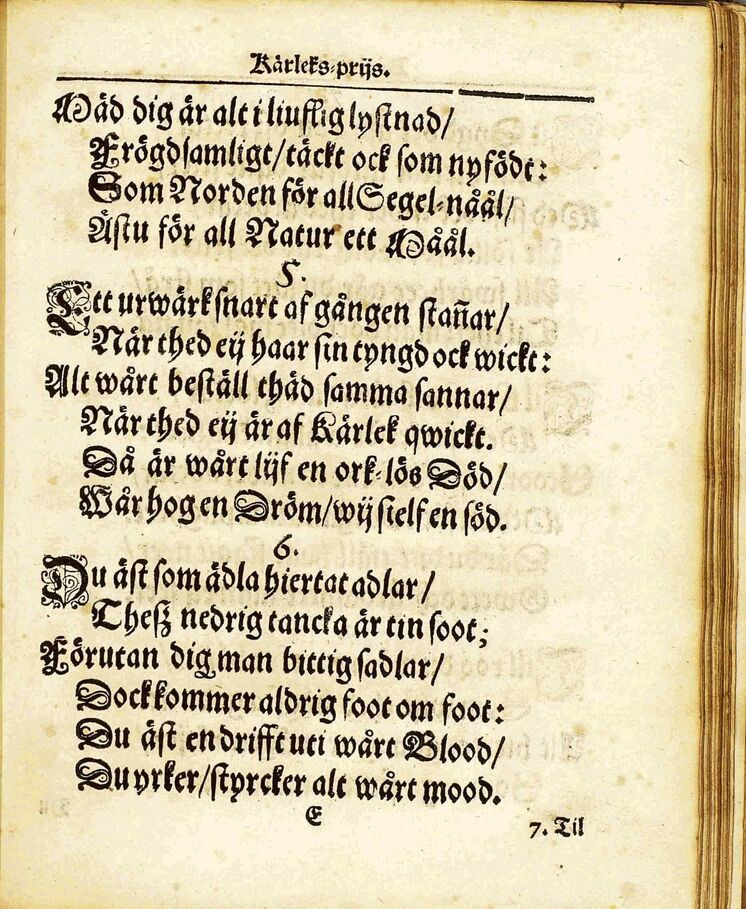 Kärleks-prijs.
Mäd dig är alt i liufflig lystnad/
Frögdsamligt/täckt ock som nyfödt:
Som Norden för all Segel-nåål/
Ästu för all Natur ett Måål.
5.
Ett urwärk snart af gången stañar/
När thed eij haar sin tyngd ock wickt:
Alt wårt beställ thäd samma sannar/
När thed eij är af Kärlek qwickt.
Då är wårt lijf en ork-lös Död/
Wår hog en Dröm/wij sielf en söd.
6.
Du äst som ädla hiertat adlar/
Thesz nedrig tancka är tin soot;
Förutan dig man bittig sadlar/
Dock kommer aldrig foot om foot:
Du äst en drifft uti wårt Blood/
Du yrker/styrcker alt wårt mood.
E
7. Til